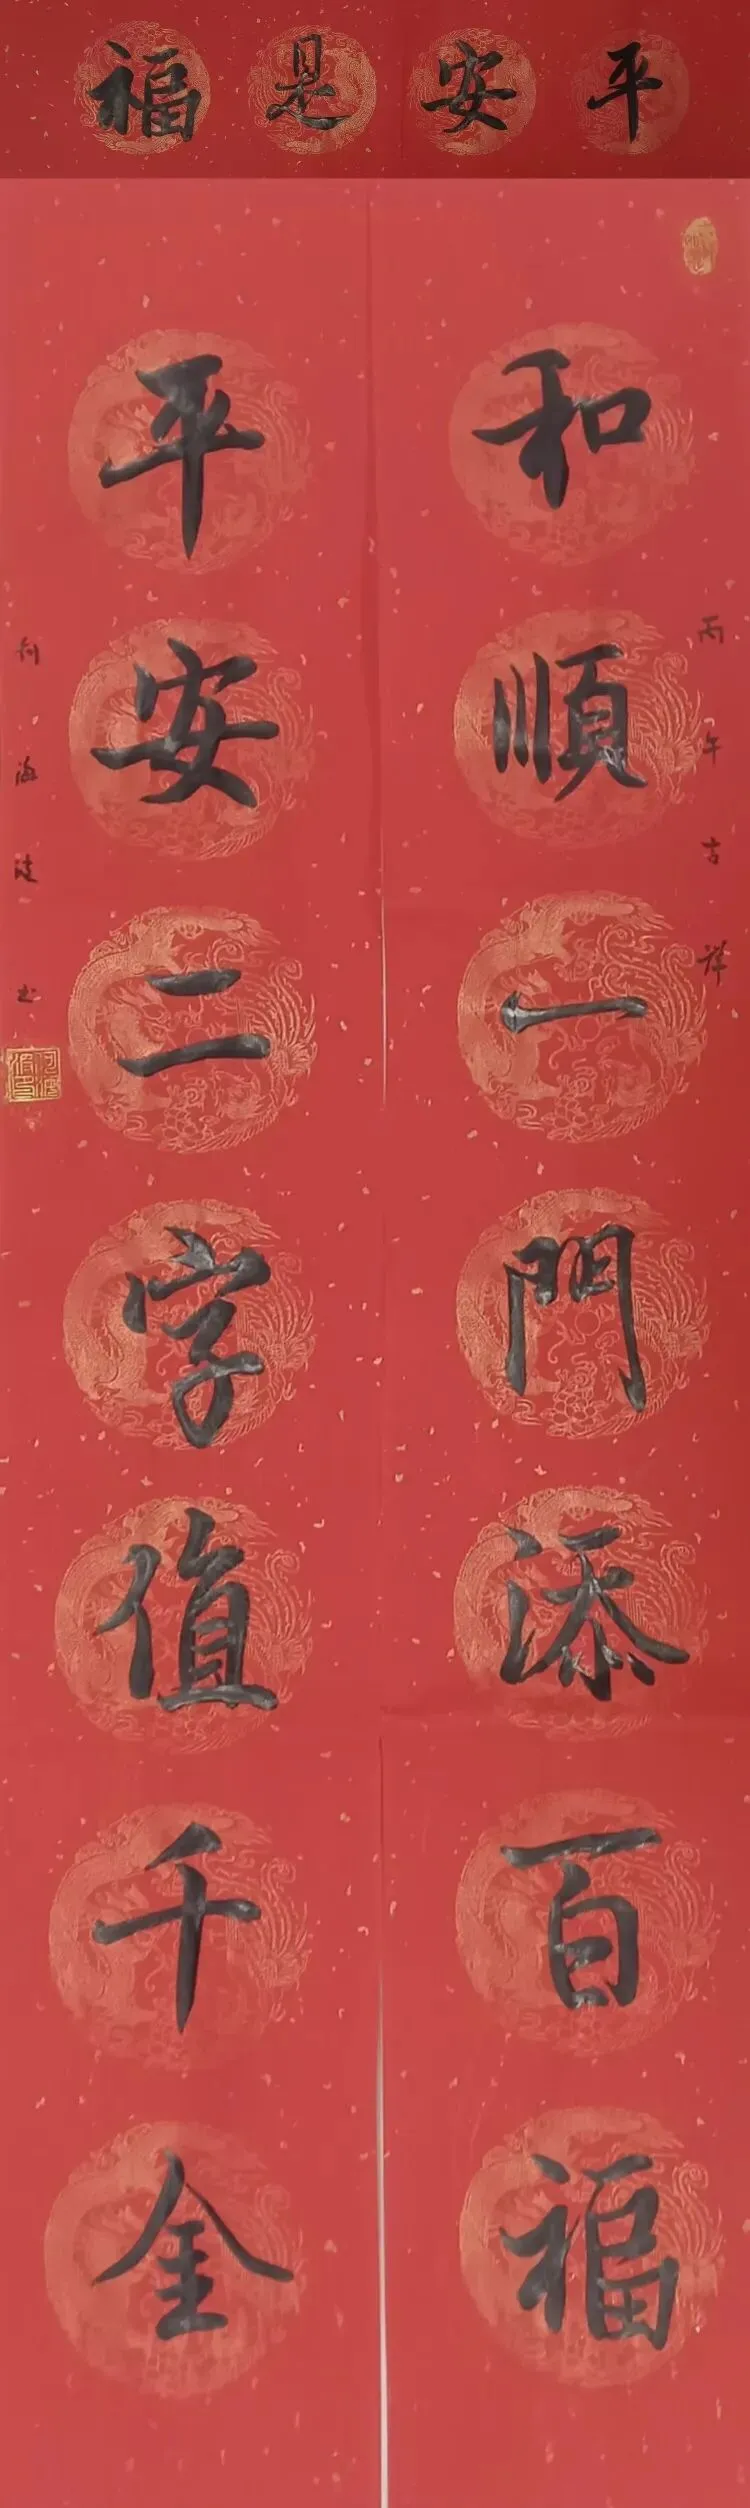 平安是福
和順一門添百福
平安二字值千金
丙午吉祥
何海涛书